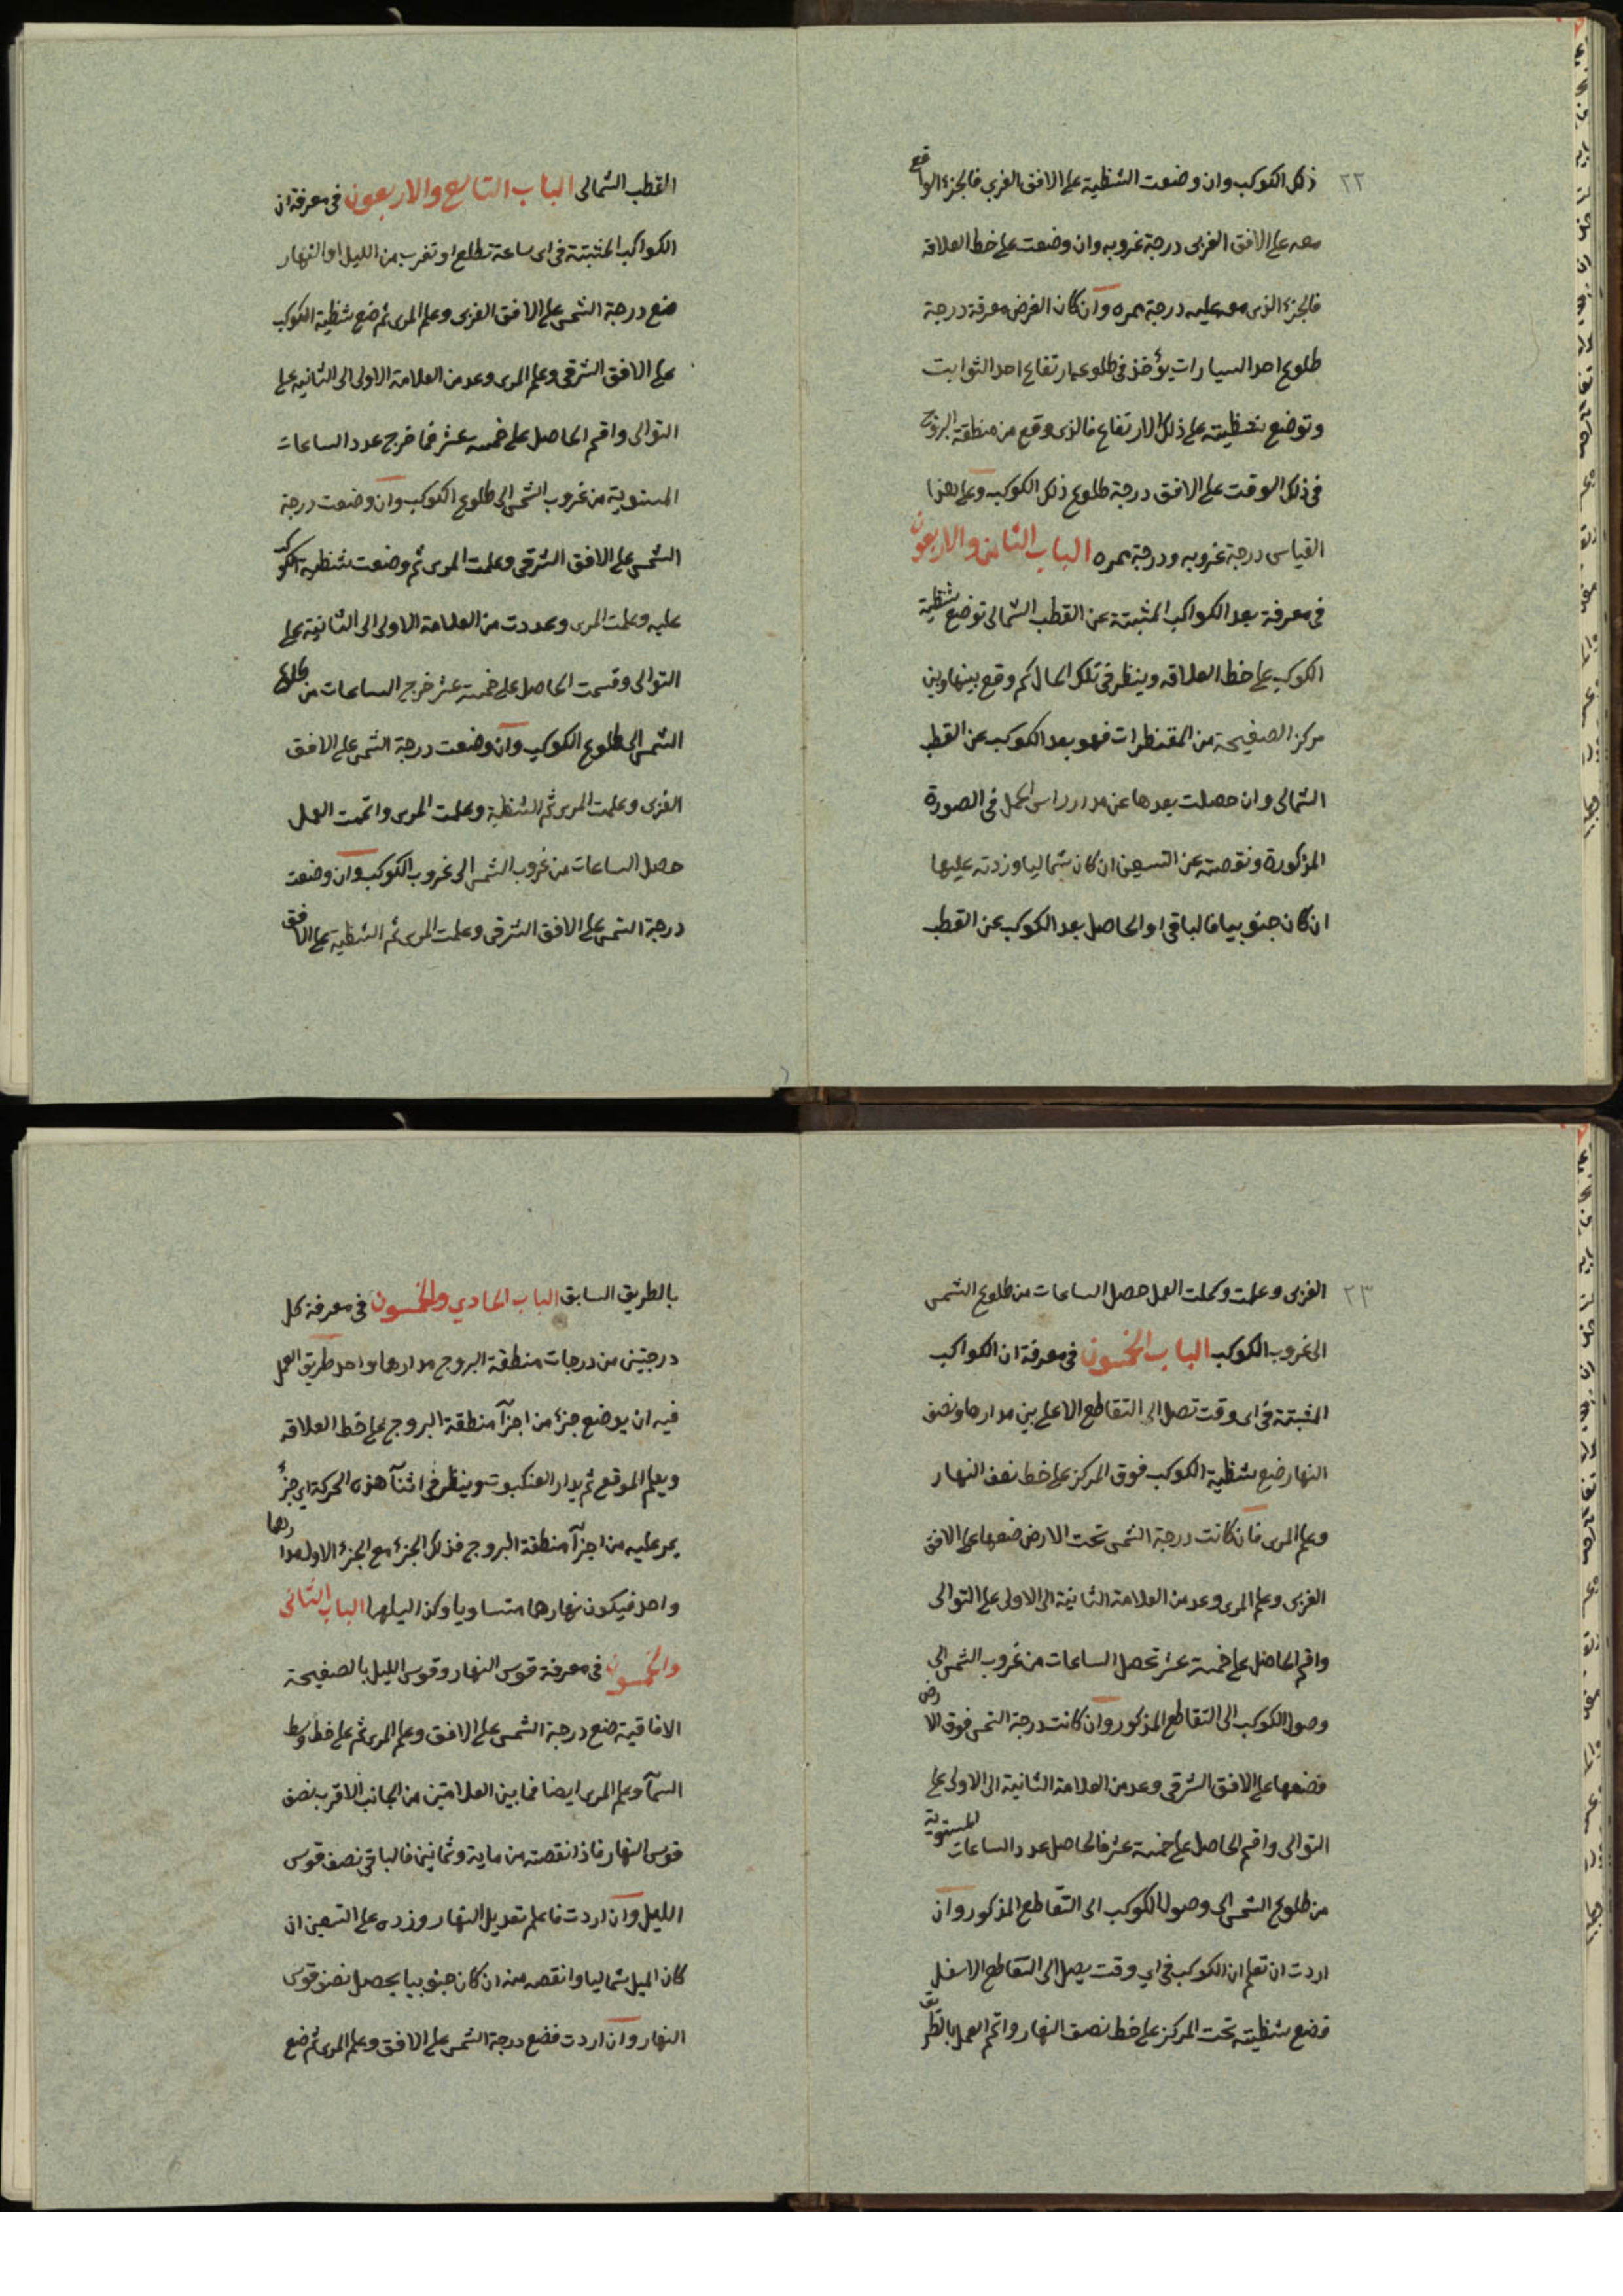 ٢٢
ذلك الكوكب وان وضعت الشظية على الافق الغربى فالجزء الواقع
معه على الافق الغربى درجة غروبه وان وضعت على خط العلاقة
فالجزء الذى معه عليه درجة ممره وان كان الغرض معرفة درجة
طلوع احد السيارات يؤخذ فى طلوعها ارتفاع احد الثوابت
وتوضع شظيته على ذلك الارتفاع فالذى وقع من منطقة البروج
فى ذلك الوقت على الافق درجة طلوع ذلك الكوكب وعلى هذا
القياس درجة غروبه ودرجة ممره الباب الثامن والاربعون
فى معرفة بعد الكواكب المثبتة عن القطب الشمالى توضع شظية
الكوكب على خط العلاقه وينظر فى تلك الحال كم وقع بينها وبين
مركز الصفيحة من المقنطرات فهو بعد الكوكب عن القطب
الشمالى وان حصلت بعدها عن مدار راس الحمل فى الصورة
المذكورة ونقصته عن التسعين ان كان شماليا وزدته عليها
ان كان جنوبيا فالباقى او الحاصل بعد الكوكب عن القطب
القطب الشمالى الباب التاسع والاربعون فى معرفة ان
الكواكب المثبتة فى اى ساعة تطلع او تغرب من الليل او النهار
ضع درجة الشمس على الافق الغربى وعلم المرى ثم ضع شظية الكوكب
على الافق الشرقى وعلم المرى وعد من العلامة الاولى الى الثانيه على
التوالى واقسم الحاصل على خمسه عشر فما خرج عدد الساعات
المستوية من غروب الشمس الى طلوع الكوكب وان وضعت درجة
الشمس على الافق الشرقى وعلمت المرى ثم وضعت شظية الكوكب
عليه وعلمت المرى وعددت من العلامة الاولى الى الثانية على
التوالى وقسمت الحاصل على خمسة عشر خرج الساعات من طلوع
الشمس الى طلوع الكوكب وان وضعت درجة الشمس على الافق
الغربى وعلمت المرى ثم الشظية وعلمت المرى واتممت العمل
حصل الساعات من غروب الشمس الى غروب الكوكب وان وضعت
درجة الشمس على الافق الشرقى وعلمت المرى ثم الشظية على الافق
٢٣
الغربى وعلمت وكملت العمل حصل الساعات من طلوع الشمس
الى غروب الكوكب الباب الخمسون فى معرفة ان الكواكب
المثبتة فى اى وقت تصل الى التقاطع الاعلى بين مدارها ونصف
النهار ضع شظية الكوكب فوق المركز على خط نصف النهار
وعلم المرى فان كانت درجة الشمس تحت الارض ضعها على الافق
الغربى وعلم المرى وعد من العلامة الثانية الى الاولى على التوالى
واقسم الحاصل على خمسة عشر تحصل الساعات من غروب الشمس الى
وصول الكوكب الى التقاطع المذكور وان كانت درجة الشمس فوق الارض
فضعها على الافق الشرقى وعد من العلامة الثانية الى الاولى على
التوالى واقسم الحاصل على خمسة عشر فالحاصل عدد الساعات المستوية
من طلوع الشمس الى وصول الكوكب الى التقاطع المذكور وان
اردت ان تعلم ان الكوكب فى اي وقت يصل الى التقاطع الاسفل
فضع شظيته تحت المركز على خط نصف النهار واتم العمل بالطريق
بالطريق السابق الباب الحادي والخمسون فى معرفة كل
درجتين من درجات منطقة البروج مدارها واحد طريق العمل
فيه ان يوضع جزء من اجزآ منطقة البروج على خط العلاقه
ويعلم الموقع ثم يدار العنكبوت وينظر فى اثنآ هذه الحركة اى جزء
يمر عليه من اجزآ منطقة البروج فذلك الجزء مع الجزء الاول مدارهما
واحد فيكون نهارهما متساويا وكذا ليلهما الباب الثانى
والخمسون فى معرفة قوس النهار وقوس الليل بالصفيحة
الافاقية ضع درجة الشمس على الافق وعلم المرى ثم على خط وسط
السمآ وعلم المرى ايضا فما بين العلامتين من الجانب الاقرب نصف
قوس النهار فاذا نقصته من ماية وثمانين فالباقى نصف قوس
الليل وان اردت فاعلم تعديل النهار وزده على التسعين ان
كان الميل شماليا وانقصه منه ان كان جنوبيا يحصل نصف قوس
النهار وان اردت فضع درجة الشمس على الافق وعلم المرى ثم ضع